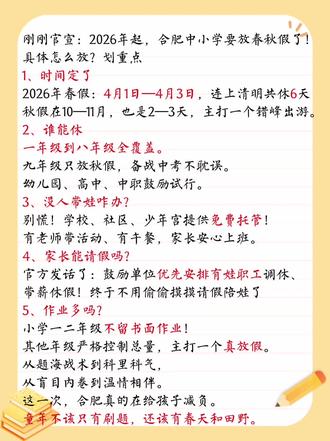 刚刚官宣：2026年起，合肥中小学要放春秋假了！
具体怎么放？划重点
1、时间定了
2026年春假：4月1日—4月3日，连上清明共休6天
秋假在10—11月，也是2—3天，主打一个错峰出游。
2、谁能休
一年级到八年级全覆盖。
九年级只放秋假，备战中考不耽误。
幼儿园、高中、中职鼓励试行。
3、没人带娃咋办？
别慌！学校、社区、少年宫提供免费托管！
有老师带活动、有午餐，家长安心上班。
4、家长能请假吗？
官方发话了：鼓励单位优先安排有娃职工调休、
带薪休假！终于不用偷偷摸摸请假陪娃了
5、作业多吗？
小学一二年级不留书面作业！
其他年级严格控制总量，主打一个真放假。
从题海战术到科里科气，
从盲目内卷到温情相伴。
这一次，合肥真的在给孩子减负。
童年不该只有刷题，还该有春天和田野。